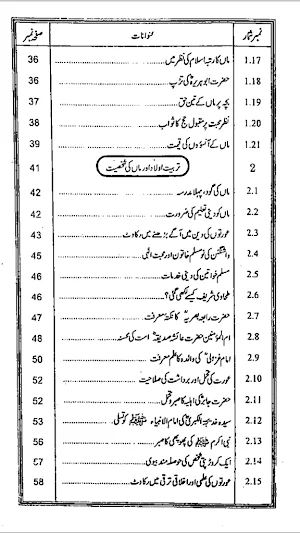 نمبر شمار عنوانات صفحہ نمبر
1.17 ماں کا رتبہ اسلام کی نظر میں 36
1.18 حضرت ابو ہریرہؓ کی تڑپ 36
1.19 بچہ پر ماں کے تین حق 37
1.20 نظر محبت پر مقبول حج کا ثواب 38
1.21 ماں کے آنسوؤں کی قیمت 39
2 تربیت اولاد اور ماں کی شخصیت 41
2.1 ماں کی گود، پہلا مدرسہ 42
2.2 ماں کو دینی تعلیم کی ضرورت 42
2.3 عورتوں کی دین میں آگے بڑھنے میں رکاوٹ 43
2.4 واشنگٹن کی نو مسلم خاتون اور محبت الٰہی 45
2.5 مسلم خواتین کی دینی خدمات 46
2.6 طحاوی شریف کیسے لکھی گئی؟ 46
2.7 حضرت رابعہ بصریہؒ کا نکتہ معرفت 47
2.8 ام المؤمنین حضرت عائشہ صدیقہؓ امت کی محسنہ 48
2.9 امام غزالیؒ کی والدہ کا علم معرفت 50
2.10 عورت کی تحمل اور برداشت کی صلاحیت 52
2.11 حضرت جابرؓ کی اہلیہ کا صبر و تحمل 52
2.12 سیدہ خدیجۃ الکبریٰؓ کی امام الانبیاء ﷺ کو تسلی 53
2.13 نبی اکرم ﷺ کی پھوپھی کا صبر 56
2.14 ایک کروڑ پتی شخص کی حوصلہ مند بیوی 57
2.15 عورتوں کی علمی اور اخلاقی ترقی میں رکاوٹ 58